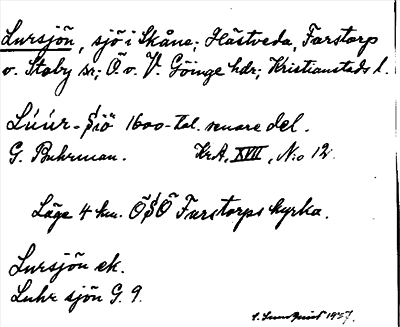 Lursjön, sjö i Skåne; Hästveda, Farstorp
o. Stoby sr; Ö. o. V. Göinge hdr; Kristianstads l.
Lúúr-Siö 1600-tal. senare del.
G. Buhrman. Kr.A. XVIII, N:o 12.
Läge 4 km. ÖSÖ Farstorps kyrka.
Lursjön ek.
Luhr sjön G. 9.
1927.